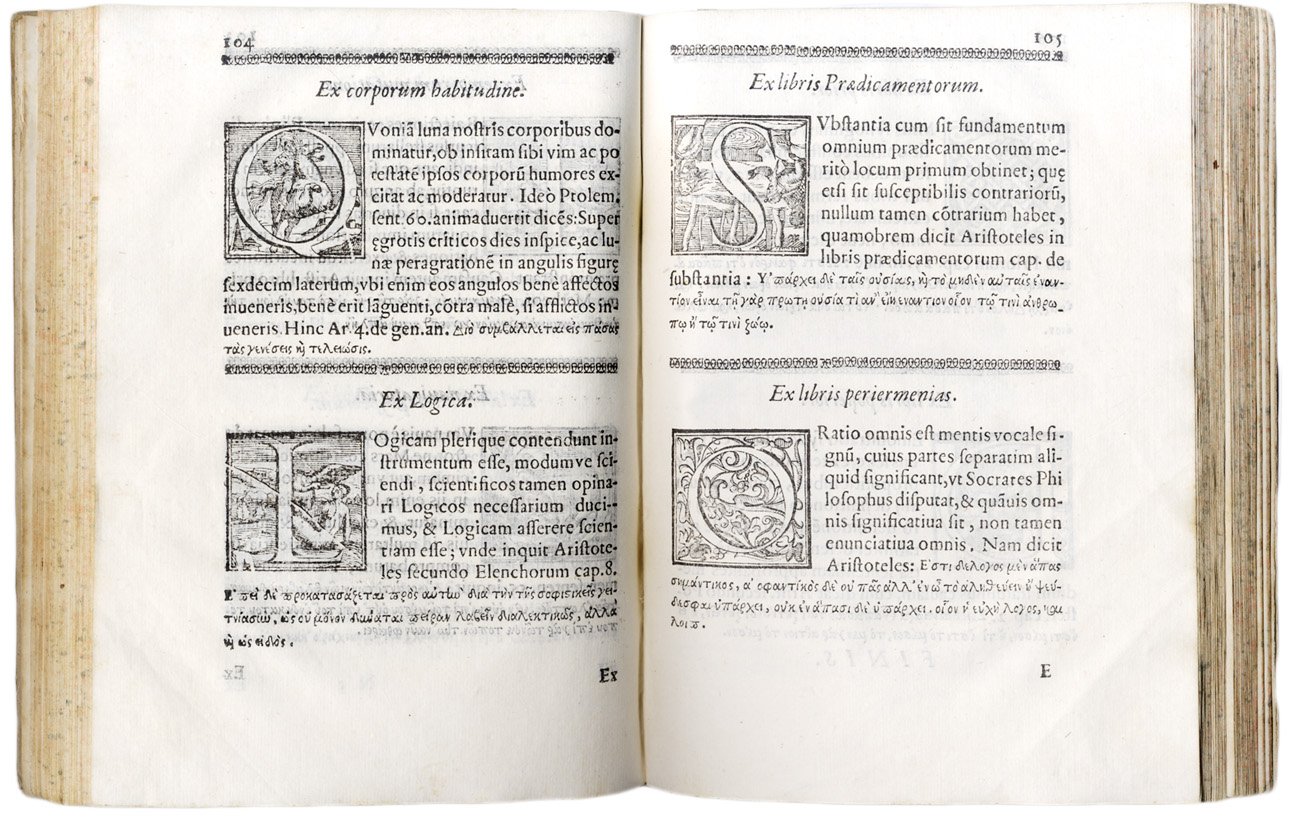 104
Ex corporum habitudine.
QVoniã luna nostris corporibus do-
minatur, ob insitam sibi vim ac po
testatẽ ipsos corporũ humores ex-
citat ac moderatur. Ideò Ptolem.
sent. 60. animaduertit dicẽs: Super
ęgrotis criticos dies inspice, ac lu-
næ peragrationẽ in angulis figurę
sexdecim laterum, vbi enim eos angulos benè affectos
inueneris, benè erit lãguenti, cõtra malè, si afflictos in-
ueneris. Hinc Ar. 4. de gen. an. Διο συμβάλλεται εἰς πάσας
τὰς γενέσεις κỳ τελειώσις.
Ex Logica.
LOgicam plerique contendunt in-
strumentum esse, modumve sci-
endi, scientificos tamen opina-
ri Logicos necessarium duci-
mus, & Logicam asserere scien-
tiam esse; vnde inquit Aristote-
les secundo Elenchorum cap. 8.
Ε'πεὶ δὲ προκατασκάζεται πρὸς αὐτὼ διὰ τὴν τῆς σοφιστικῆς γει-
τνίασιω, ὡς οὐ μόνον δυύαται πεῖραν λαβεῖν διαλεκτικῶς, ἀλλὰ
κỳ ὡς εἰδὼς.
Ex
105
Ex libris Prædicamentorum.
SVbstantia cum sit fundamentum
omnium prædicamentorum me-
ritò locum primum obtinet; quę
etsi sit susceptibilis contrariorũ,
nullum tamen cõtrarium habet,
quamobrem dicit Aristoteles in
libris prædicamentorum cap. de
substantia: Υ'πάρχει δὲ ταῖς οὐσίαις, κỳ τὸ μηδὲν αὐταῖς ἐναν-
τίον εἶναι τῇ γὰρ πρώτη οὐσία τὶ ἂν εἴη ἐναντιον οἷον τῷ τινὶ ἀνθρω_
πῳ ἢ τῷ τινὶ ζώῳ.
Ex libris periermenias.
ORatio omnis est mentis vocale si-
gnũ, cuius partes separatim ali-
quid significant, vt Socrates Phi
losophus disputat, & quãuis om-
nis significatiua sit, non tamen
enunciatiua omnis. Nam dicit
Aristoteles: Ε'στι δὲ λογος μὲν ἅπας
σημάντικος, α'ποφαντικὸς δὲ οὐ πᾶς ἀλλ' ἐν ᾧ τὸ ἀληθεύειν ἢ ψεύ-
δεσθαι ὑπάρχει, οὐκ ἐν ἅπασι δὲ ὑπάρχει. οἷον ἡ εὐχὴ λόγος,
E